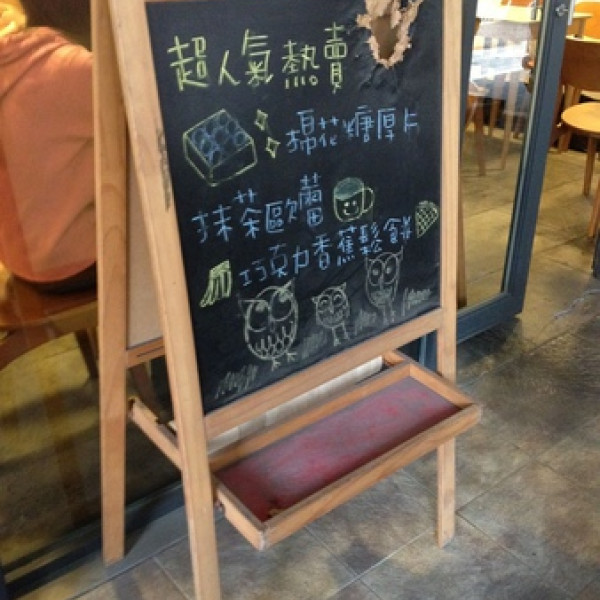 超人氣熱賣
棉花糖厚片
抹茶歐蕾
巧克力香蕉鬆餅